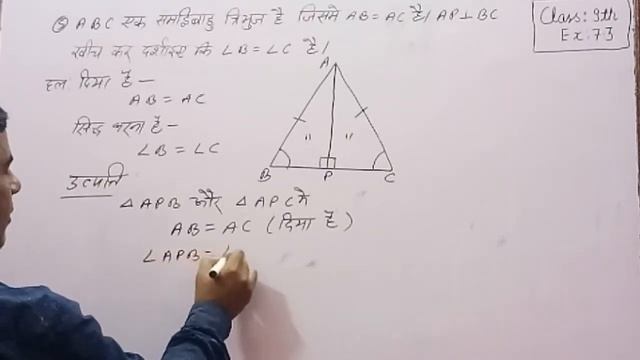 ⑤ ABC एक समद्विबाहु त्रिभुज है जिसमे AB = AC है। AP ⊥ BC
खींच कर दर्शाइए कि ∠B = ∠C है।
Class: 9th
Ex. 7.3
हल दिया है —
AB = AC
सिद्ध करना है —
∠B = ∠C
A
B P C
उत्पत्ति
△APB और △APC में
AB = AC (दिया है)
∠APB = ∠